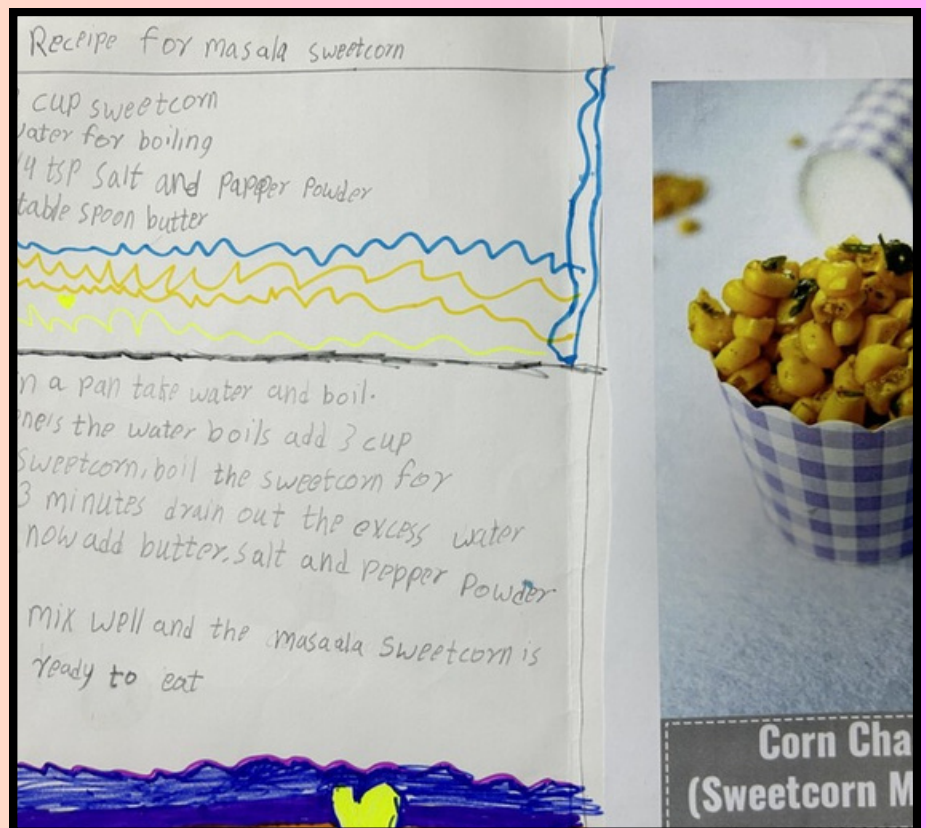 Receipe for masala sweetcorn
cup sweetcorn
ater for boiling
/4 tsp salt and papper powder
table spoon butter
n a pan take water and boil.
the water boils add 3 cup
sweetcorn, boil the sweetcorn for
3 minutes drain out the excess water
now add butter. salt and pepper powder
mix well and the masaala sweetcorn is
ready to eat
Corn Cha
(Sweetcorn M